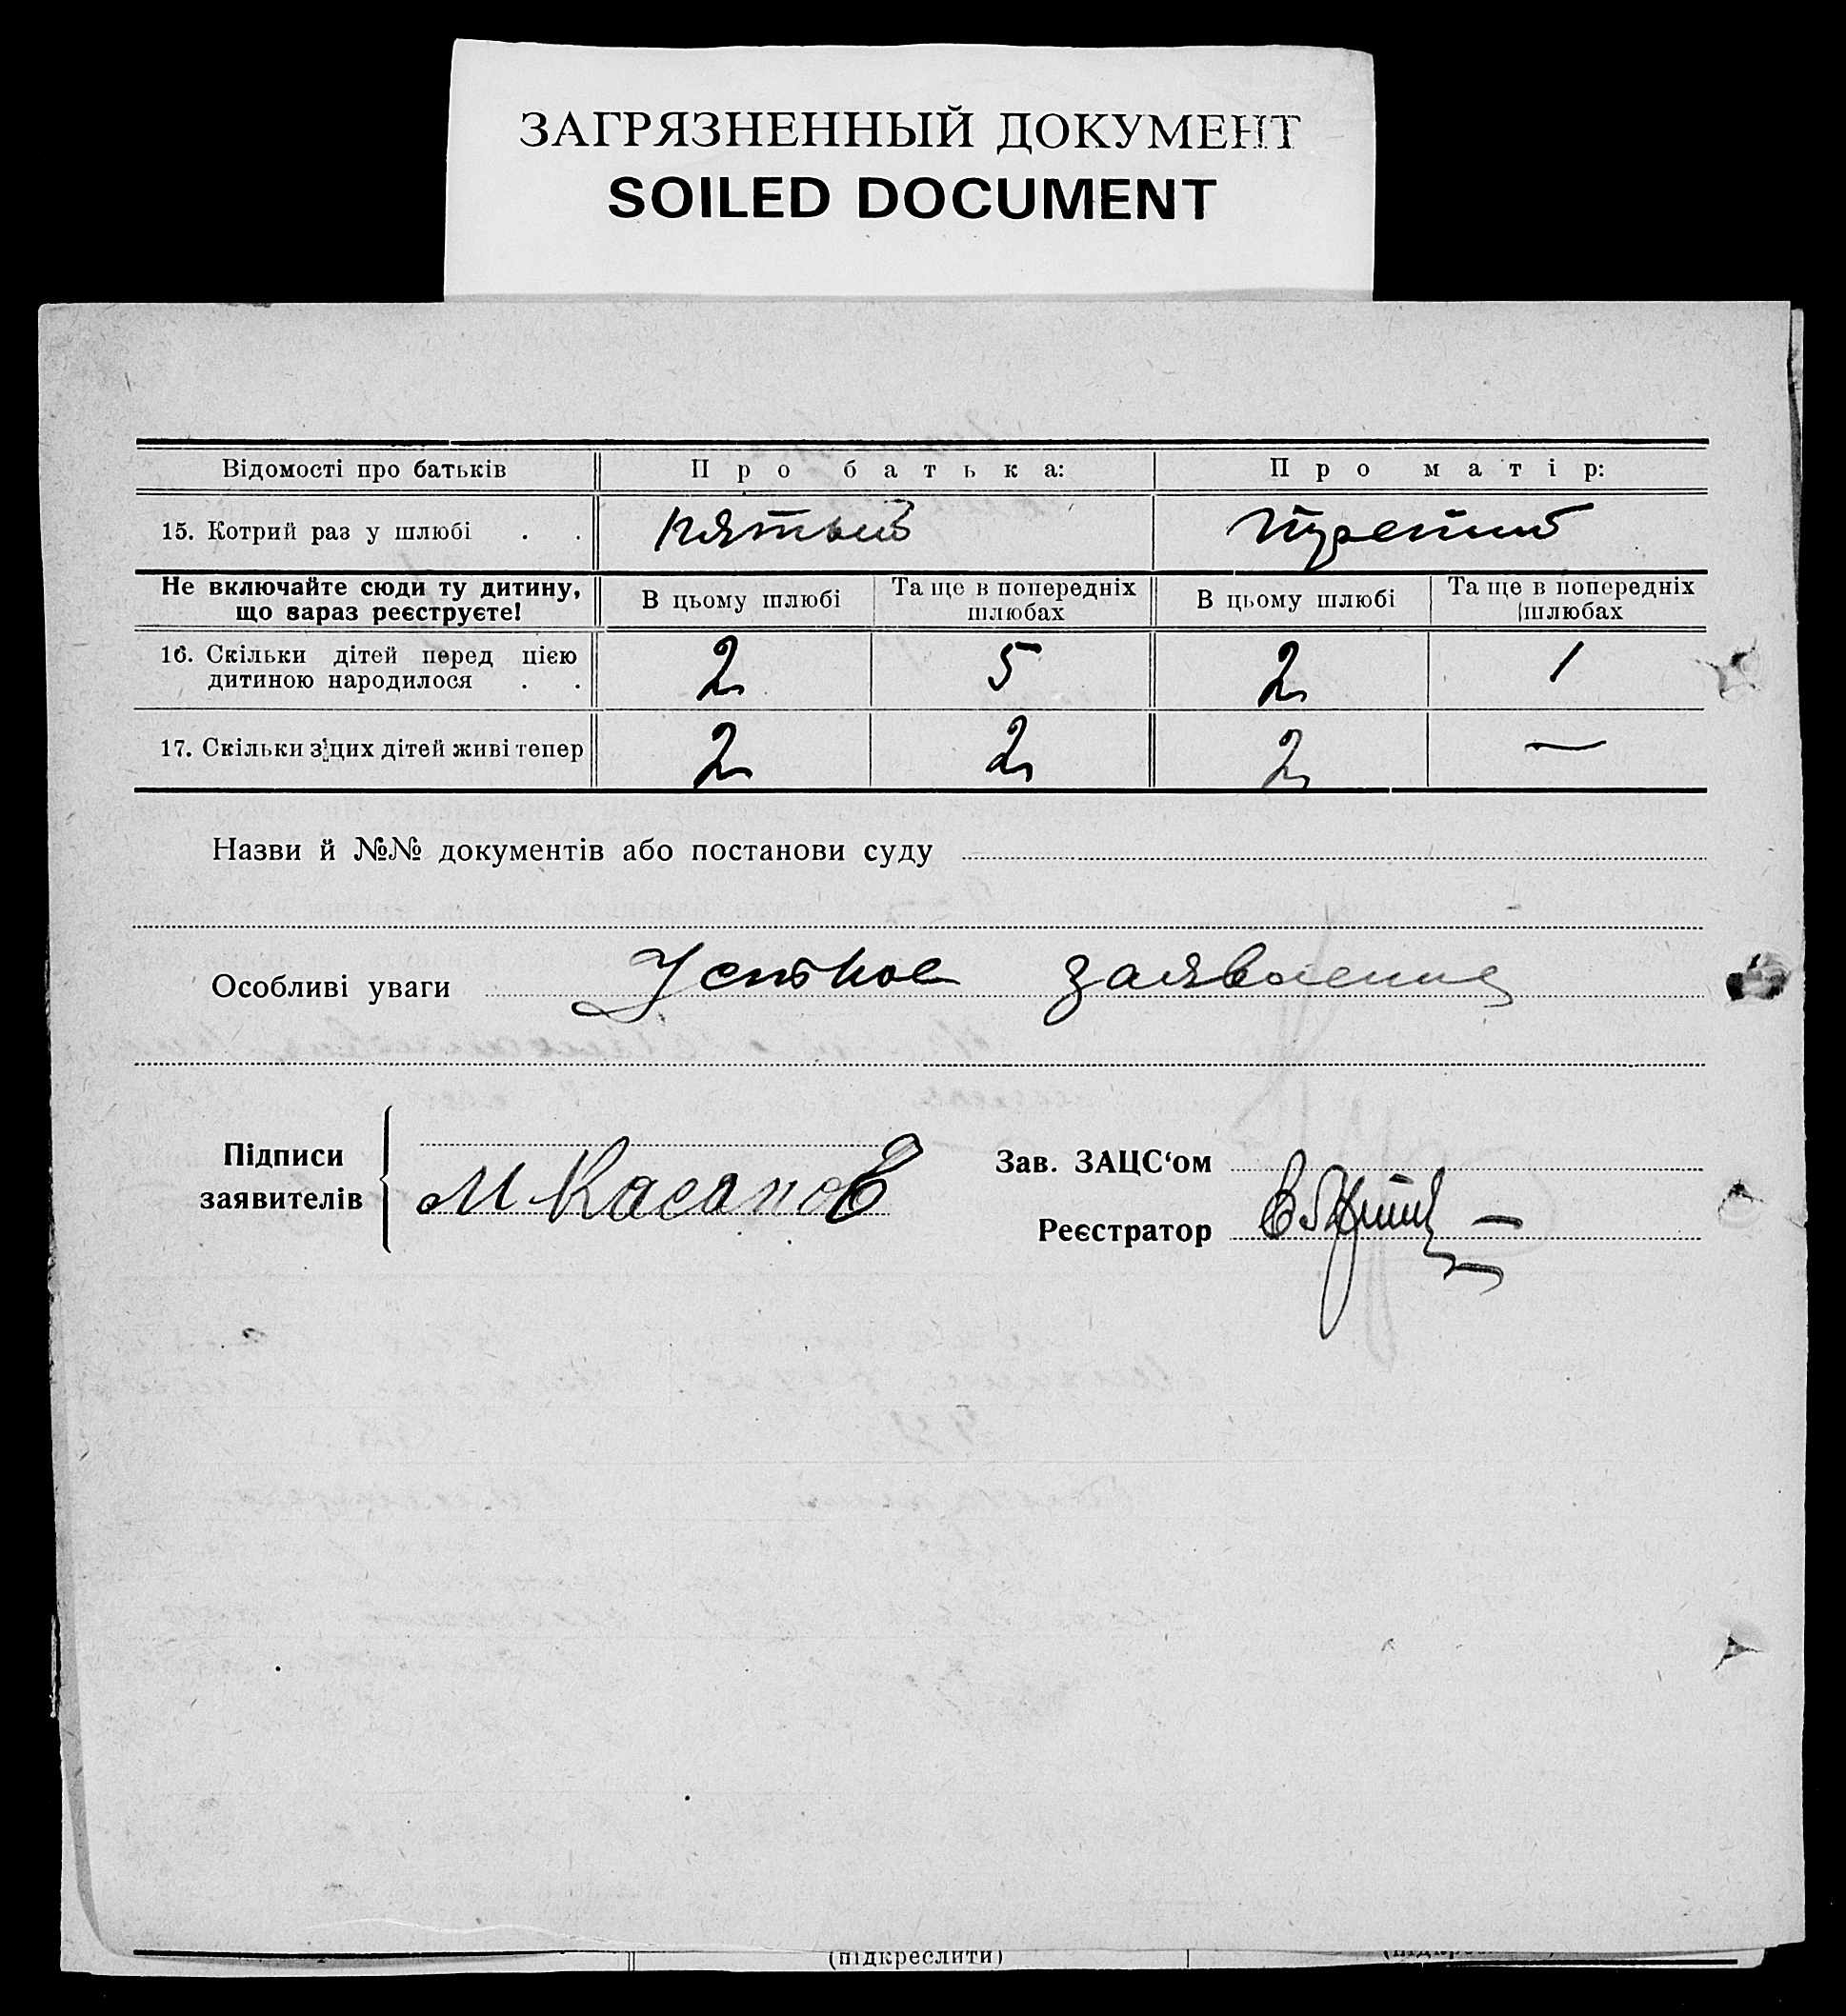 ЗАГРЯЗНЕННЫЙ ДОКУМЕНТ
SOILED DOCUMENT
Відомості про батьків Про батька: Про матір:
15. Котрий раз у шлюбі . . пятый третий
Не включайте сюди ту дитину, що зараз реєструєте! В цьому шлюбі Та ще в попередніх шлюбах В цьому шлюбі Та ще в попередніх шлюбах
16. Скільки дітей перед цією
дитиною народилося . . 2 5 2 1
17. Скільки з цих дітей живі тепер 2 2 2 —
Назви й №№ документів або постанови суду
Особливі уваги Устное заявление
Підписи
заявителів М Касапов
Зав. ЗАЦС‘ом
Реєстратор
(підкреслити)